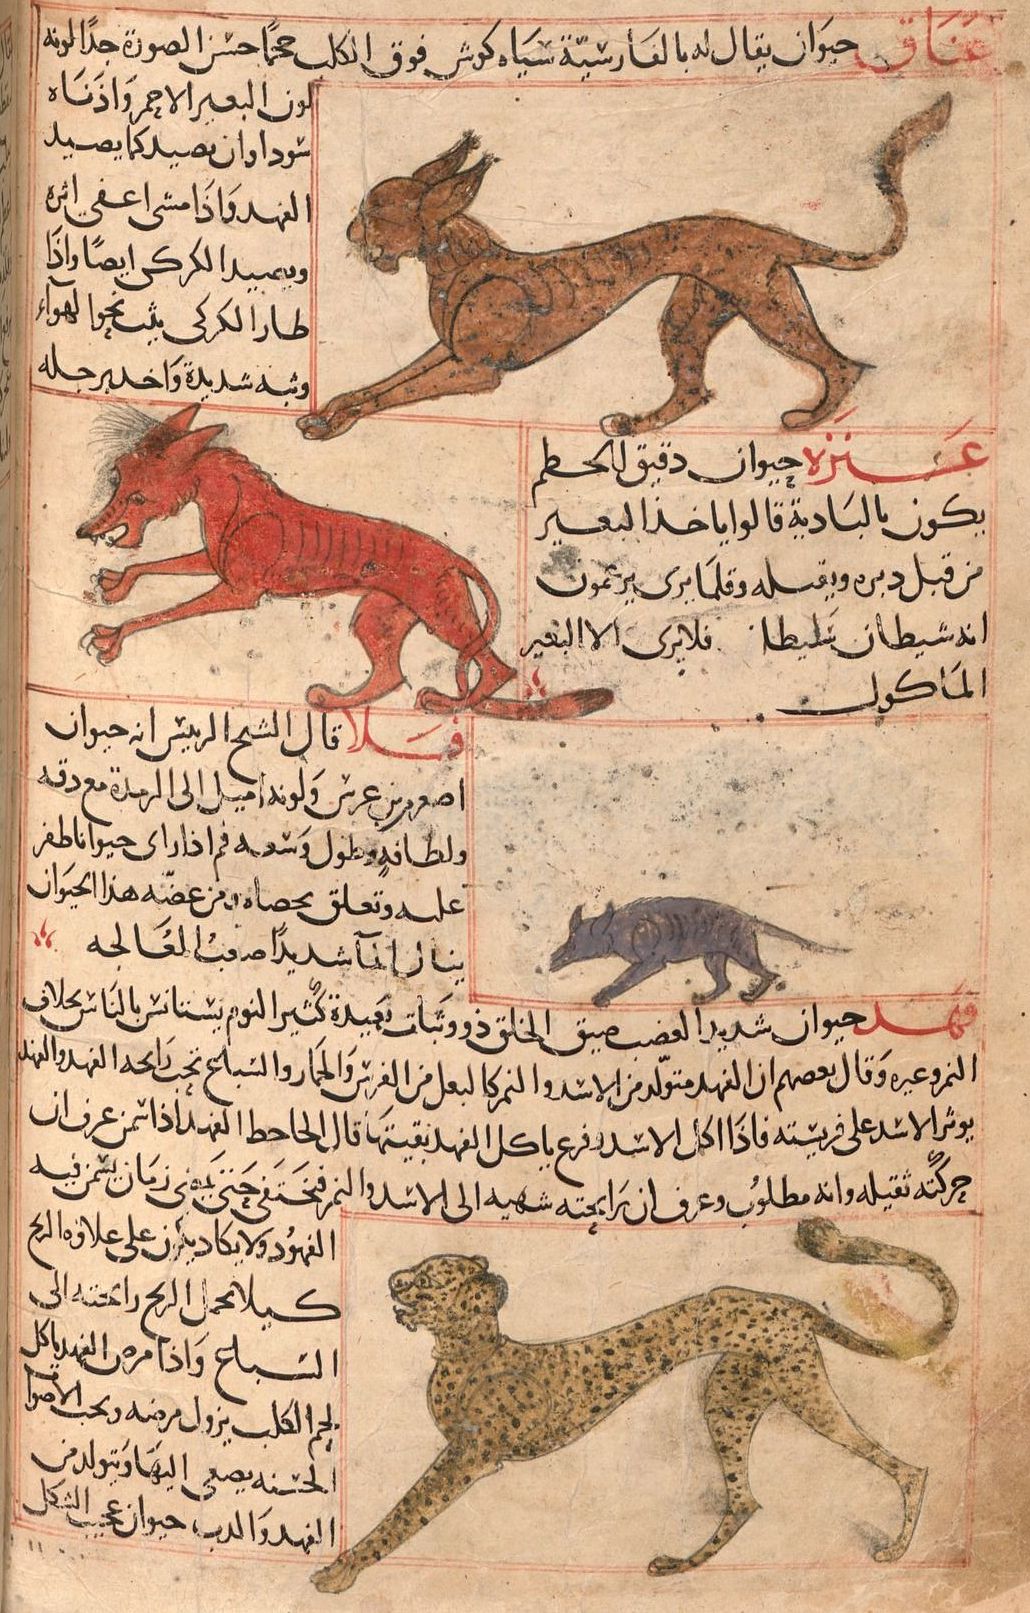 عناق حيوان يقال له بالفارسيّة سياه كوش فوق الكلب حجمًا حسن الصورة جدًا لونه
لون البعير الاحمر واذناه
سوداوان يصيد كما يصيد
الفهد واذا مشى اعفى اثره
ويصيد الكركى ايضًا واذا
طار الكركى يثب نحو الهوآء
وثبه شديدة واخد برجله
عنزة حيوان دقيق الخطم
يكون بالبادية قالوا ياخذ البعير
من قبل دبره ويقتله وقلما يرى يزعمون
انه شيطان فلا يرى الا البعير
الماكول
فسلا قال الشيخ الرييس انه حيوان
اصغر من عرس ولونه اميل الى الرمدة مع دقه
ولطافه وطول وسعه فم اذا راى حيوانا طفر
عليه وتعلق بخصاه ومن عضّه هذا الحيوان
ينال المآ شديدًا صعب المعالجه
فهد حيوان شديد الغضب ضيق الخلق ذو وثبات بعيدة كثير النوم يستانس بالناس بخلاف
النمر وغيره وقال بعضهم ان الفهد متولّد من الاسد والنمر كالبغل من الفرس والحمار والسباع تحب رايحه الفهد والفهد
يوثر الاسد على فريسته فاذا اكل الاسد وفرغ ياكل الفهد بقيتها قال الجاحظ الفهد اذا سمن عرف ان
حركته ثقيله وانه مطلوب وعرف ان رايحته شهيه الى الاسد والنمر فيختفى حتى زمان يسمن فيه
الفهود ولا يكاد على علاوه الريح
كيلا يحمل الريح رايحته الى
السباع واذا مرض الفهد ياكل
لحم الكلب يزول مرضه ويحب الاصوات
الحسنه يصغى اليها ويتولد من
الفهد والدب حيوان عجيب الشكل